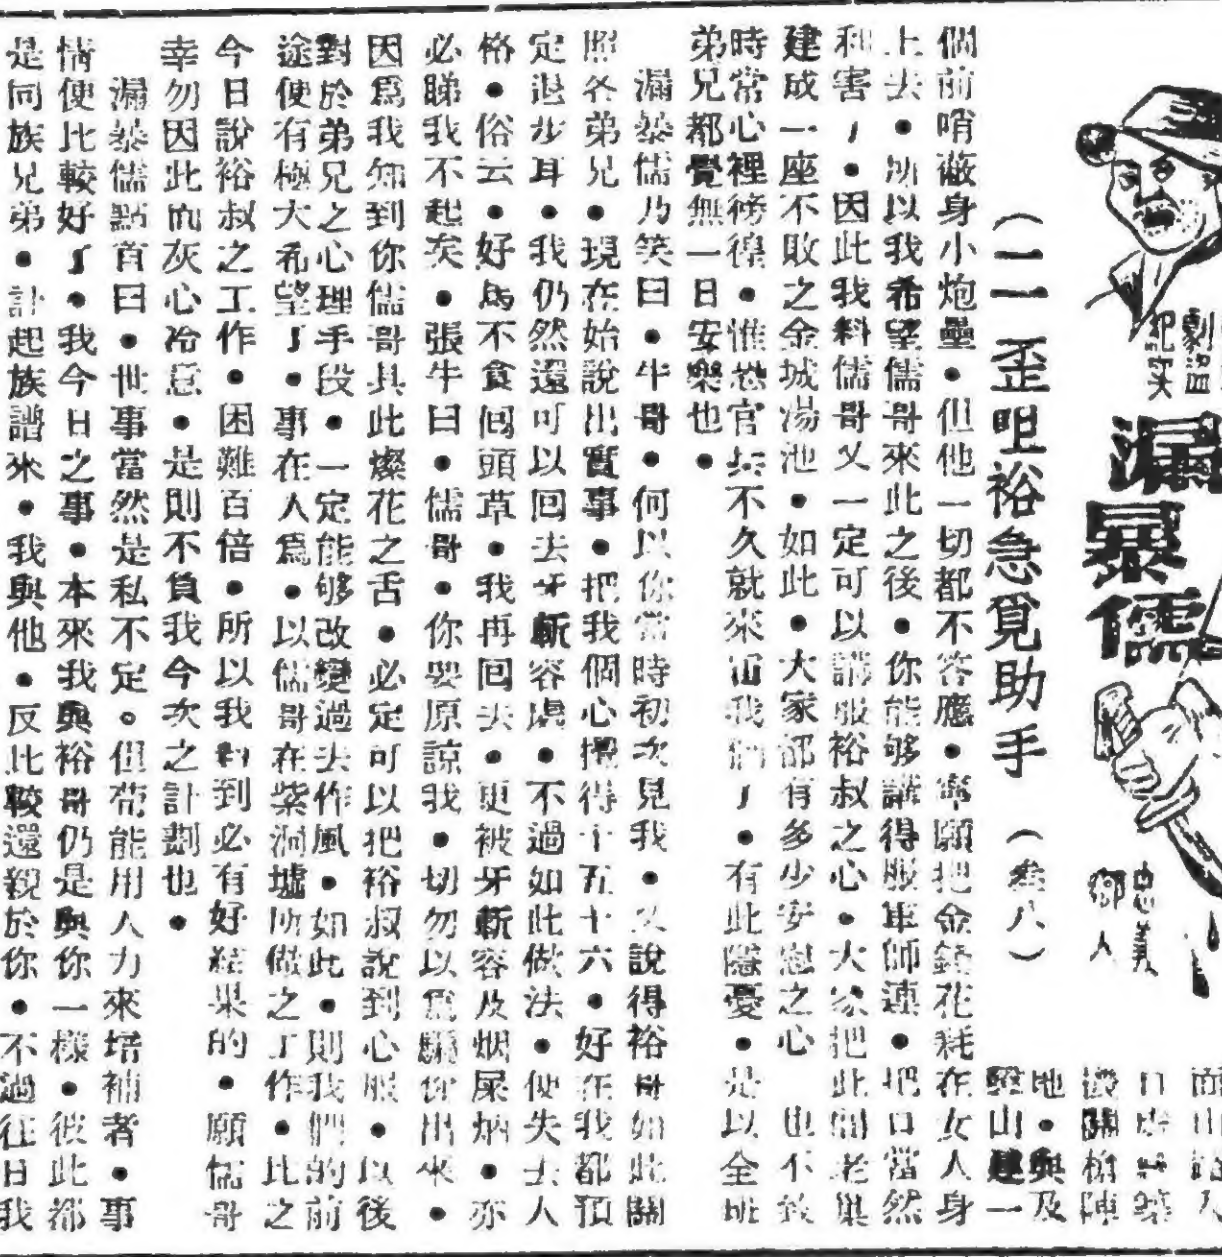 漏暴儒
忠義鄉人
(二一)歪咀裕急覓助手 (叁八)
地●與及
山建一
個前哨蔽身小炮壘●但他一切都不答應●寧願把金錢花耗在女人身
上去●所以我希望儒哥來此之後●你能够講得服軍師連●把口當然
利害●因此我料儒哥又一定可以講服裕叔之心●大家把此間老巢
建成一座不敗之金城湯池●如此●大家都有多少安慰之心 也不致
時常心裡徬徨●惟恐官兵不久就來 我們●有此隱憂●是以全班
弟兄都覺無一日安樂也●
漏暴儒乃笑曰●牛哥●何以你當時初次見我●又說得裕哥如此關
照各弟兄●現在始說出實事●把我個心攪得十五十六●好在我都預
定退步耳●●我仍然還可以回去牙斬容處●不過如此做法●便失去人
格●俗云●好馬不食回頭草●我再回去●更被牙斬容及烟屎炳●亦
必睇我不起矣●張牛曰●儒哥●你要原諒我●切勿以為騙你出來●
因爲我知到你儒哥具此燦花之舌●必定可以把裕叔說到心服●以後
對於弟兄之心理手段●一定能够改變過去作風●如此●則我們的前
途便有極大希望●事在人爲●以儒哥在紫洞墟所做之工作●比之
今日說裕叔之工作●困難百倍●所以我料到必有好結果的●願儒哥
幸勿因此而灰心冷意●是則不負我今次之計劃也●
漏暴儒點首曰●世事當然是私不定○但苟能用人力來培補者●事
情便比較好●我今日之事●本來我與裕哥仍是與你一樣●彼此都
是同族兄弟●計起族譜來●我與他●反比較還親於你●不過往日我